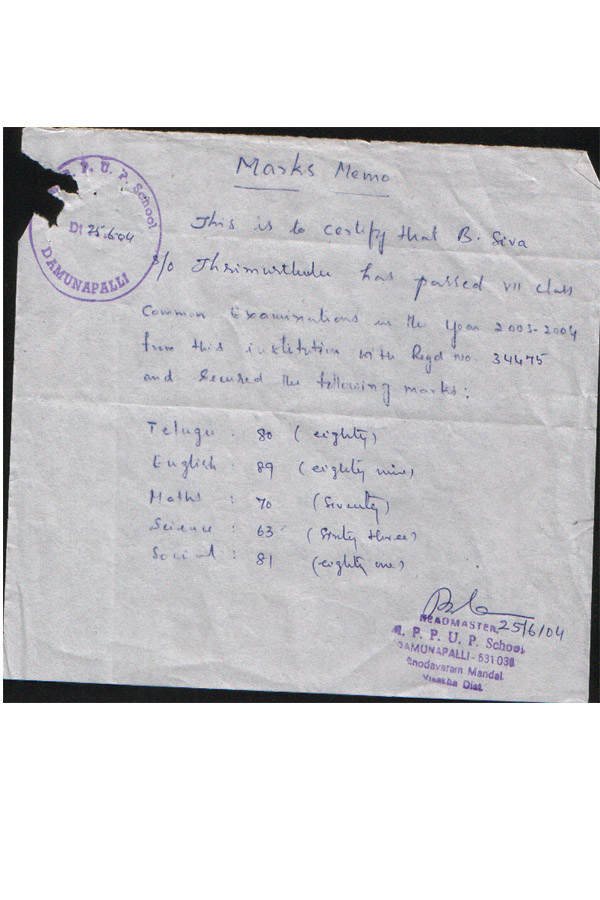 Marks Memo
P. U. P. School
Dt 25.6.04
DAMUNAPALLI
This is to certify that B. Siva
S/o Thrimurthulu has passed VII class
Common Examinations in the Year 2003-2004
from this institution with Regd No. 34475
and secured the following marks:
Telugu : 80 (eighty)
English : 89 (eighty nine)
Maths : 70 (Seventy)
Science : 63 (Sixty three)
Social : 81 (eighty one)
25/6/04
HEADMASTER,
M. P. P. U. P. School
DAMUNAPALLI - 531 030
Mandal.
Visakha Dist.